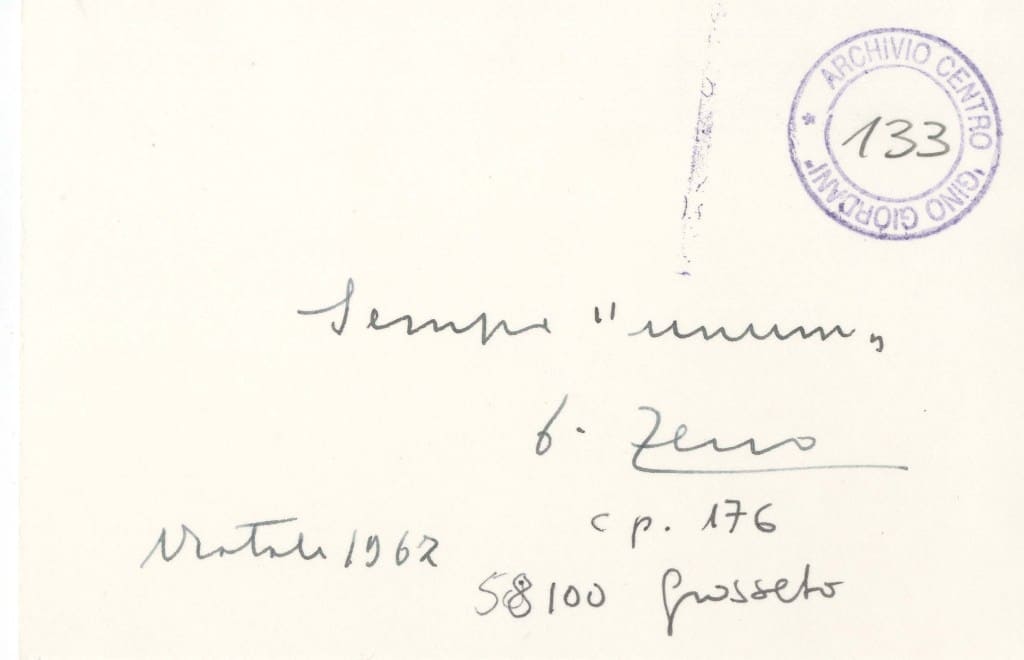 ARCHIVIO CENTRO "GINO GIORDANI" *
133
Sempre "unum"
d. Zeno
c p. 176
Natale 1962
58100 Grosseto